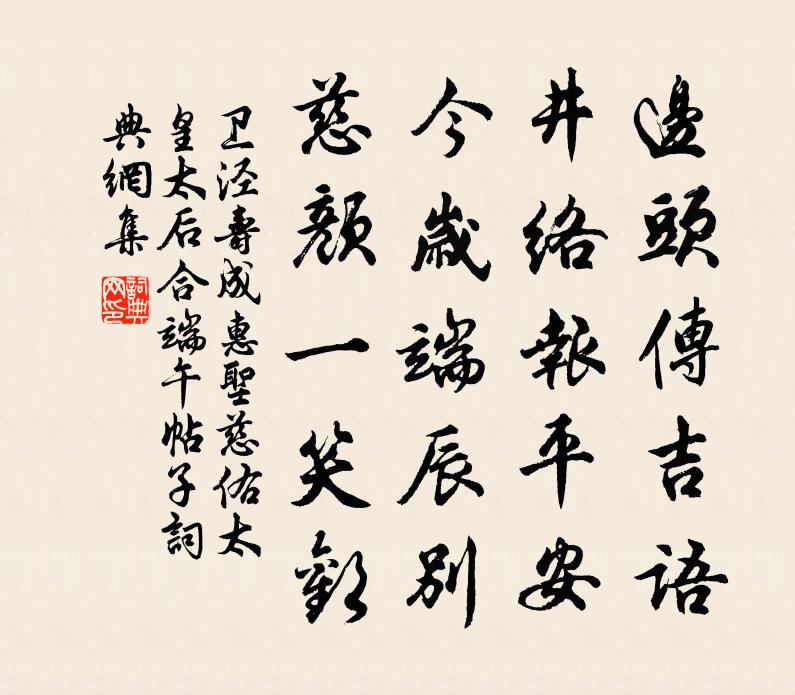 邊頭傳吉語
井絡報平安
今歲端辰別
慈顏一笑歡
卫泾壽成惠聖慈佑太
皇太后合端午帖子詞
典網集
詞典网印